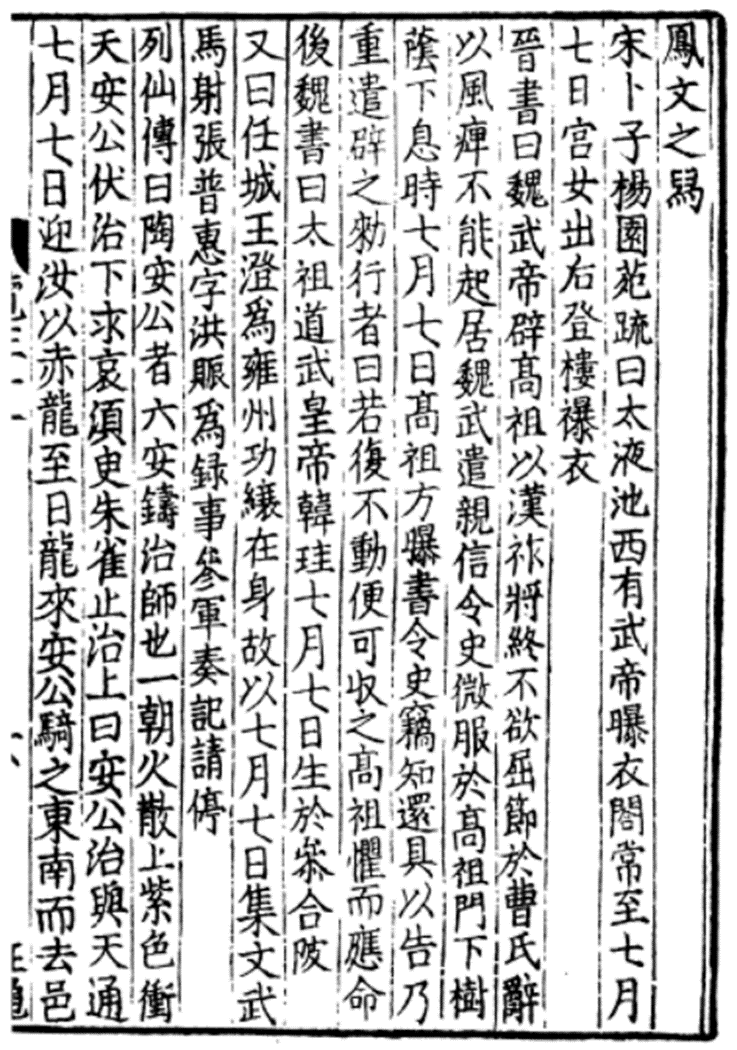 鳳文之舄
宋卜子楊園苑䟽曰太液池西有武帝曝衣閣常至七月
七日宫女出后登樓𥜥衣
晉書曰魏武帝辟髙祖以漢祚將終不欲屈節於曹氏辭
以風痺不能起居魏武遣親信令史微服於髙祖門下樹
蔭下息時七月七日髙祖方曝書令史竊知還具以告乃
重遣辟之勑行者曰若復不動便可収之髙祖懼而應命
後魏書曰太祖道武皇帝韓珪七月七日生於叅合陂
又曰任城王澄爲雍州功縗在身故以七月七日集文武
馬射張普惠字洪賑爲録事叅軍奏記請停
列仙傳曰陶安公者六安鑄治師也一朝火散上紫色衝
天安公伏治下求哀湏史朱雀止治上曰安公治與天通
七月七日迎汝以赤龍至日龍來安公騎之東南而去邑